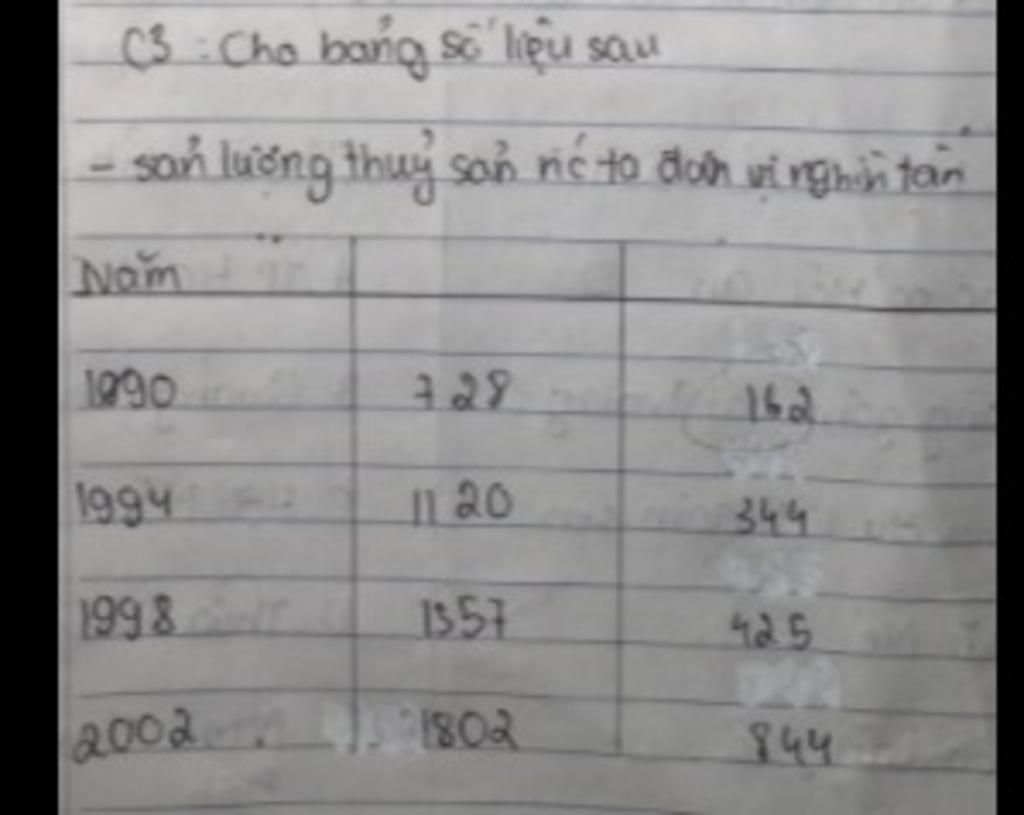 C3 : Cho bảng số liệu sau
- sản lượng thuỷ sản nc ta đơn vị nghìn tấn
Năm
1990 728 162
1994 1120 344
1998 1357 425
2002 1802 844